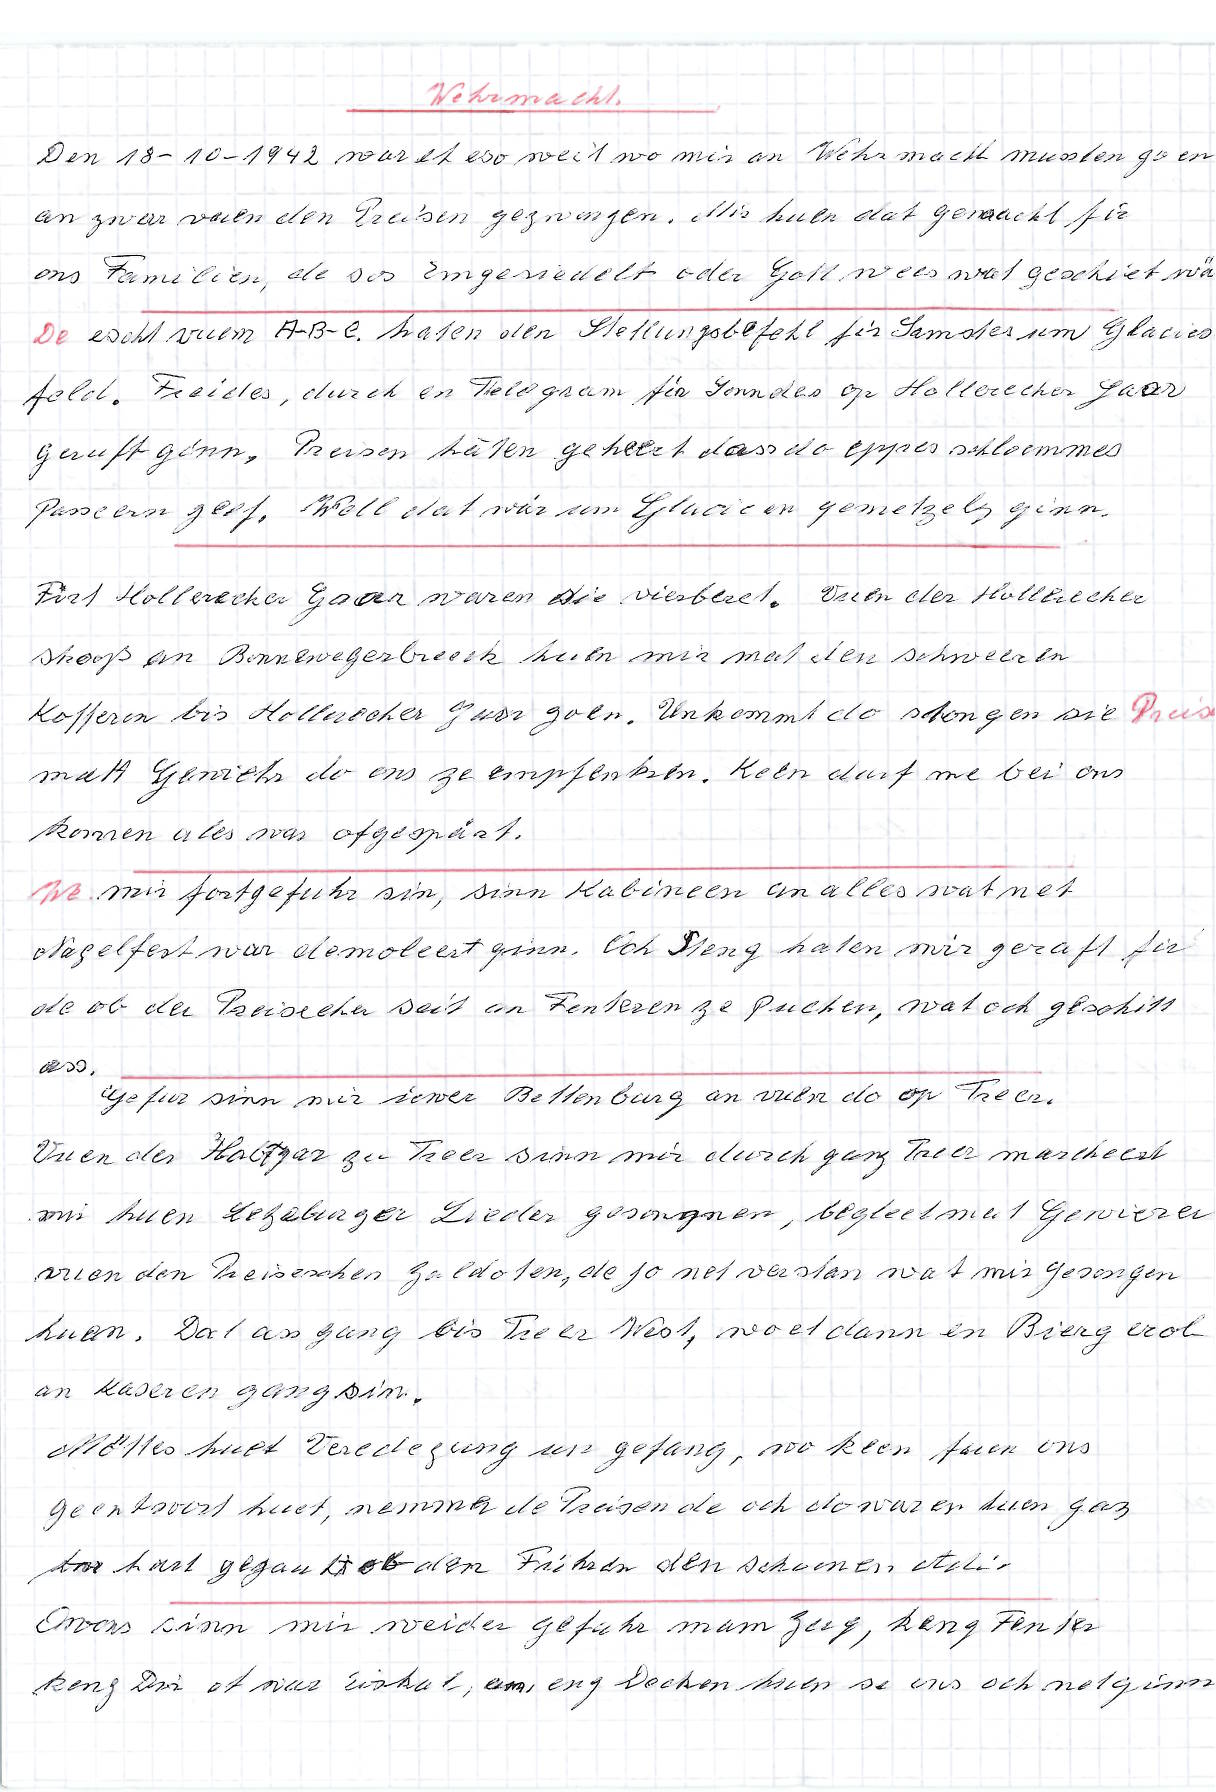 Wehrmacht.
Den 18-10-1942 war et eso weit wo mir an Wehrmacht mussten goen
an zwar vuen den Preisen gezwongen. Mir huen dat gemacht fir
ons Familien, de sos Emgesiedelt oder Gott wees wat geschiet wä
De escht vuem A-B-C. haten den Stellungsbefehl fir Samstes um Glacies
feld. Freides, durch en Telegram fir Sonndes op Hollerecher Gaar
geruft ginn. Preisen häten geheert dass do eppes schloemmes
passeern geef. Well dat wär um Glacicen gemetzelt ginn.
Firt Hollerecher Gaar waren die vierberet. Vuen der Hollerecher
strooß an Bonnewegerbreeck huen mir mat den schweeren
Kofferen bis Hollerecher Gaar goen. Unkommt do stongen sie Preis
matt Geweehr do ons ze empfenken. Keen durf me bei ons
kommen ales war ofgespärt.
We mir fortgefuhr sin, sinn Kabineen an alles wat net
Nagelfest war demoleert ginn. Och Steng haten mir geraft fir
de ob der Preisecher seit an Fenteren ze puchen, wat och geschitt
ass.
Gefur sinn mir iewer Bettenburg an vuen do op Treer.
Vuen der Haltgar zu Treer sinn mir durch ganz Treer marcheert
mir huen Letzeburger Lieder gesongnen, begleet mat Gewierer
vuen den Preiseschen Zaldoten, de jo net verstan wat mir Gesongen
huen. Dat ass gang bis Treer West, wo et dann en Bierg erob
an Kaseren gang sin.
Möttes huet Veredegung un gefang, wo keen fuen ons
geentwort huet, nemmen de Preisen de och do waren huen gaz
hart gegau ob den Führer den schounen Adi.
Owens sinn mir weider gefuhr mam Zug, keng Fenter
keng Dir et war eiskal, eng Decken huen se ons och net ginn